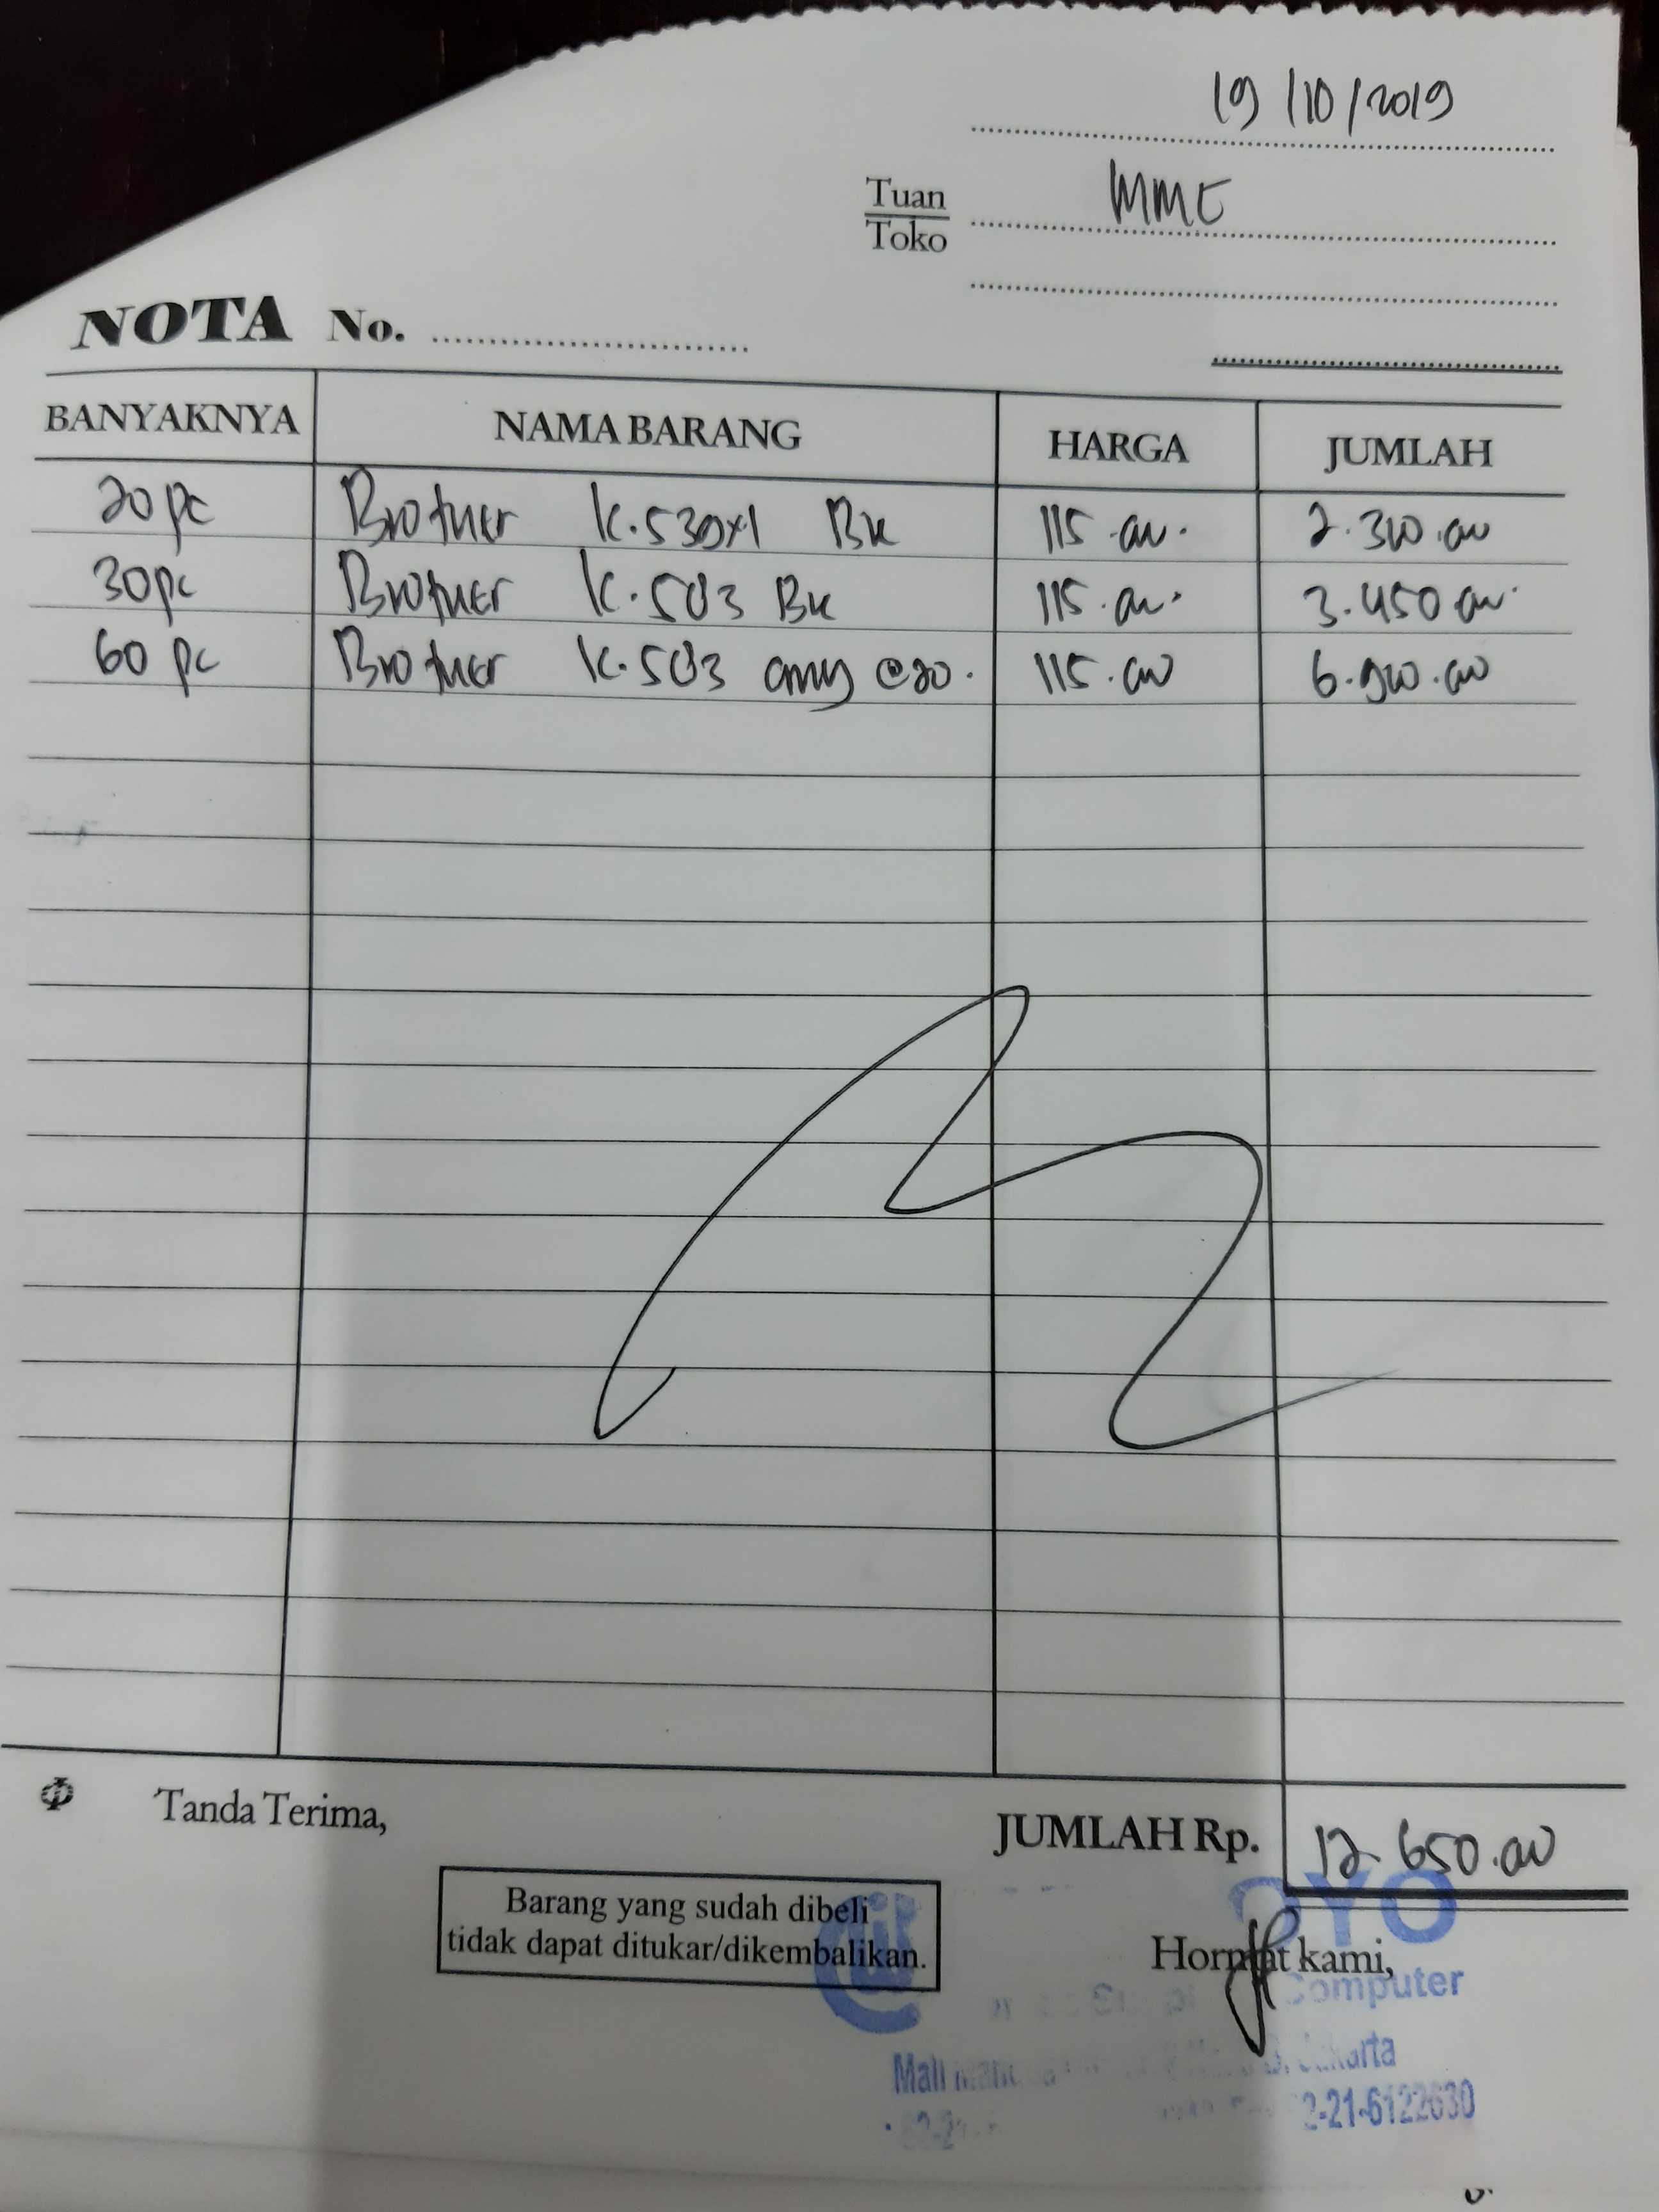 19/10/2019
Tuan
Toko
MME
NOTA No.
BANYAKNYA NAMA BARANG HARGA JUMLAH
20 pc Brother Bk 115.000. 2.300.000
30 pc Brother K.503 Bk 115.000. 3.450.000.
60 pc Brother K.503 cmy @20. 115.000 6.900.000
Tanda Terima,
JUMLAH Rp. 12.650.000
Barang yang sudah dibeli
tidak dapat ditukar/dikembalikan.
Hormat kami,
Computer
Mall Jakarta
2-21-6122630